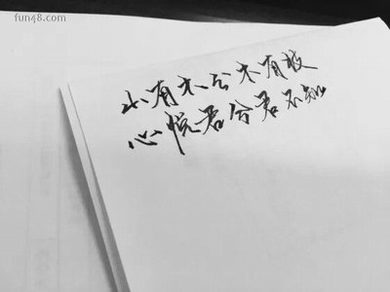 fun48.com
山有木兮木有枝
心悦君兮君不知